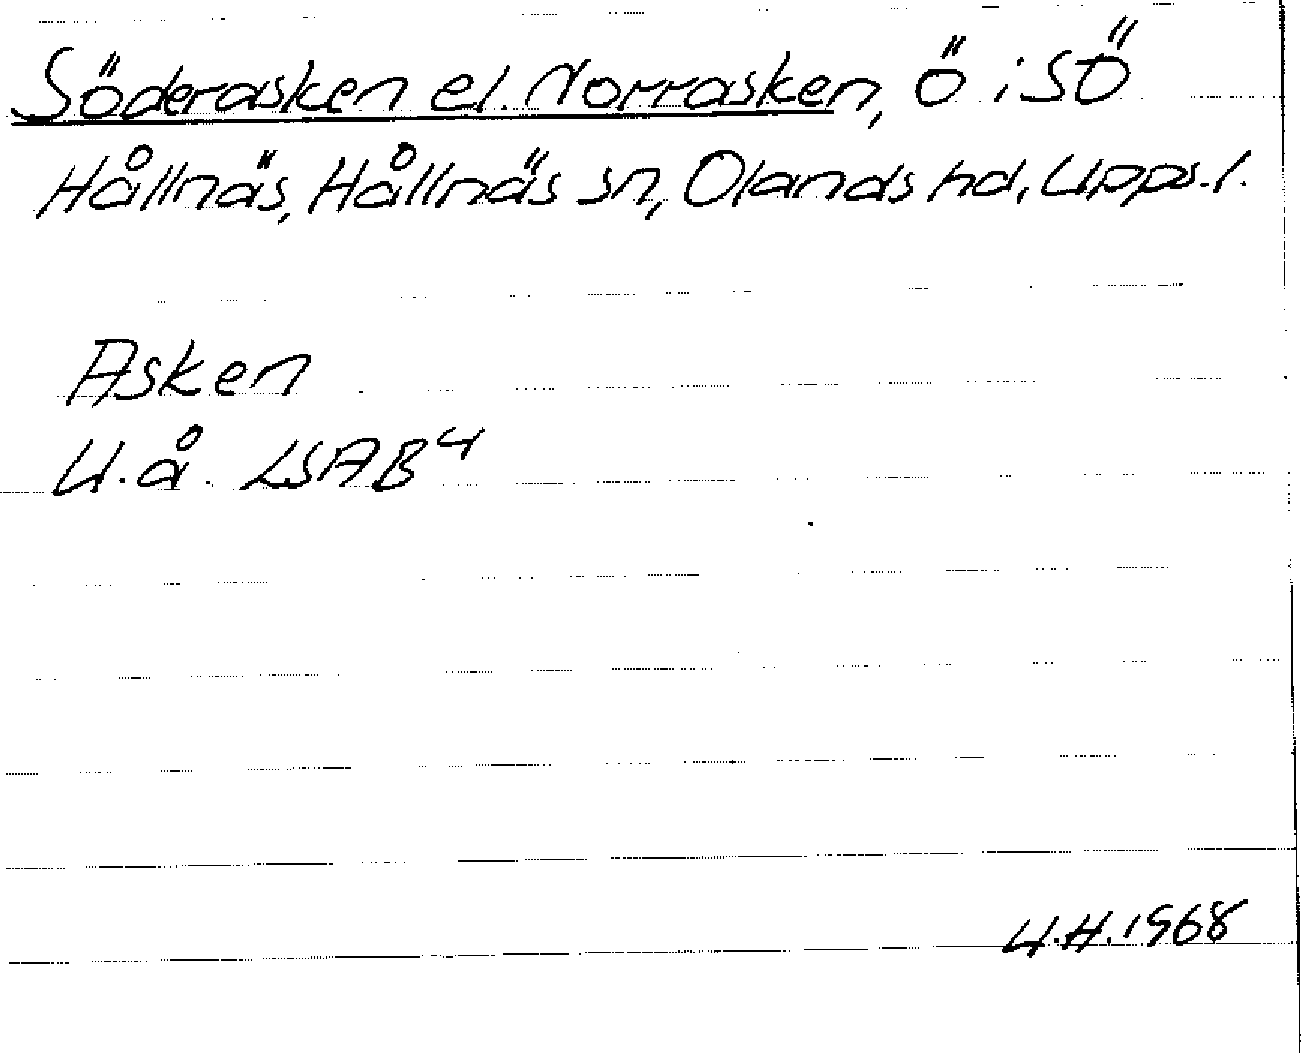 Söderasken el. Norrasken, Ö i SÖ
Hållnäs, Hållnäs sn, Olands hd, Upps. l.
Asken
U.å. LSAB⁴
U.H. 1968